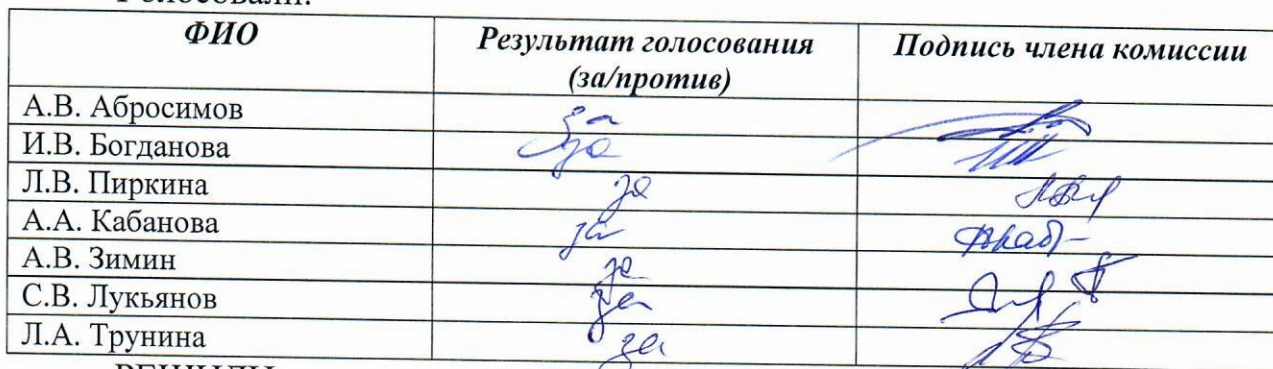 Голосовали:
ФИО Результат голосования (за/против) Подпись члена комиссии
А.В. Абросимов за
И.В. Богданова за
Л.В. Пиркина за
А.А. Кабанова за
А.В. Зимин за
С.В. Лукьянов за
Л.А. Трунина за
РЕШИЛИ